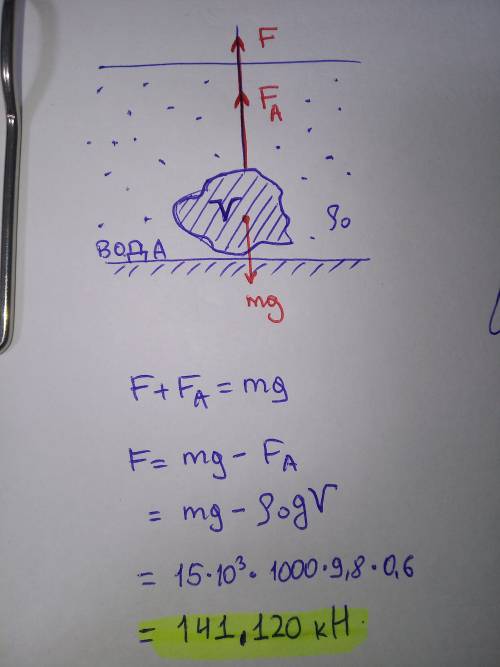 F
F_A
V
ρ₀
ВОДА
mg
F + F_A = mg
F = mg - F_A
= mg - ρ₀gV
= 15·10³· 1000·9,8·0,6
= 141,120 кН